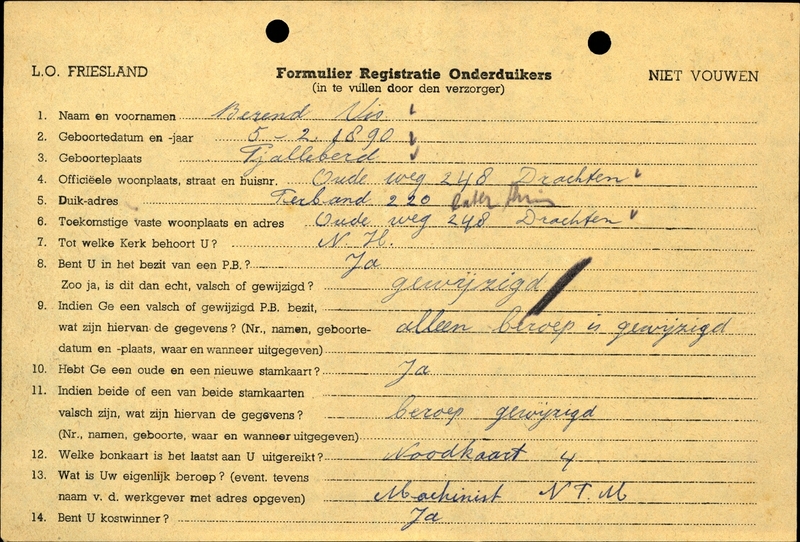 L.O. FRIESLAND
Formulier Registratie Onderduikers
NIET VOUWEN
(in te vullen door den verzorger)
1. Naam en voornamen Berend Vis
2. Geboortedatum en -jaar 5-2 1890
3. Geboorteplaats Tjalleberd
4. Officiëele woonplaats, straat en huisnr. Oude weg 248 Drachten
5. Duik-adres Terband 220
6. Toekomstige vaste woonplaats en adres Oude weg 248 Drachten
7. Tot welke Kerk behoort U? N.H.
8. Bent U in het bezit van een P.B.? Ja
Zoo ja, is dit dan echt, valsch of gewijzigd? gewijzigd
9. Indien Ge een valsch of gewijzigd P.B. bezit,
wat zijn hiervan de gegevens? (Nr., namen, geboorte- alleen beroep is gewijzigd
datum en -plaats, waar en wanneer uitgegeven)
10. Hebt Ge een oude en een nieuwe stamkaart? Ja
11. Indien beide of een van beide stamkaarten
valsch zijn, wat zijn hiervan de gegevens? beroep gewijzigd
(Nr., namen, geboorte, waar en wanneer uitgegeven)
12. Welke bonkaart is het laatst aan U uitgereikt? Noodkaart 4
13. Wat is Uw eigenlijk beroep? (event. tevens
naam v. d. werkgever met adres opgeven) Machinist N T M
14. Bent U kostwinner? Ja